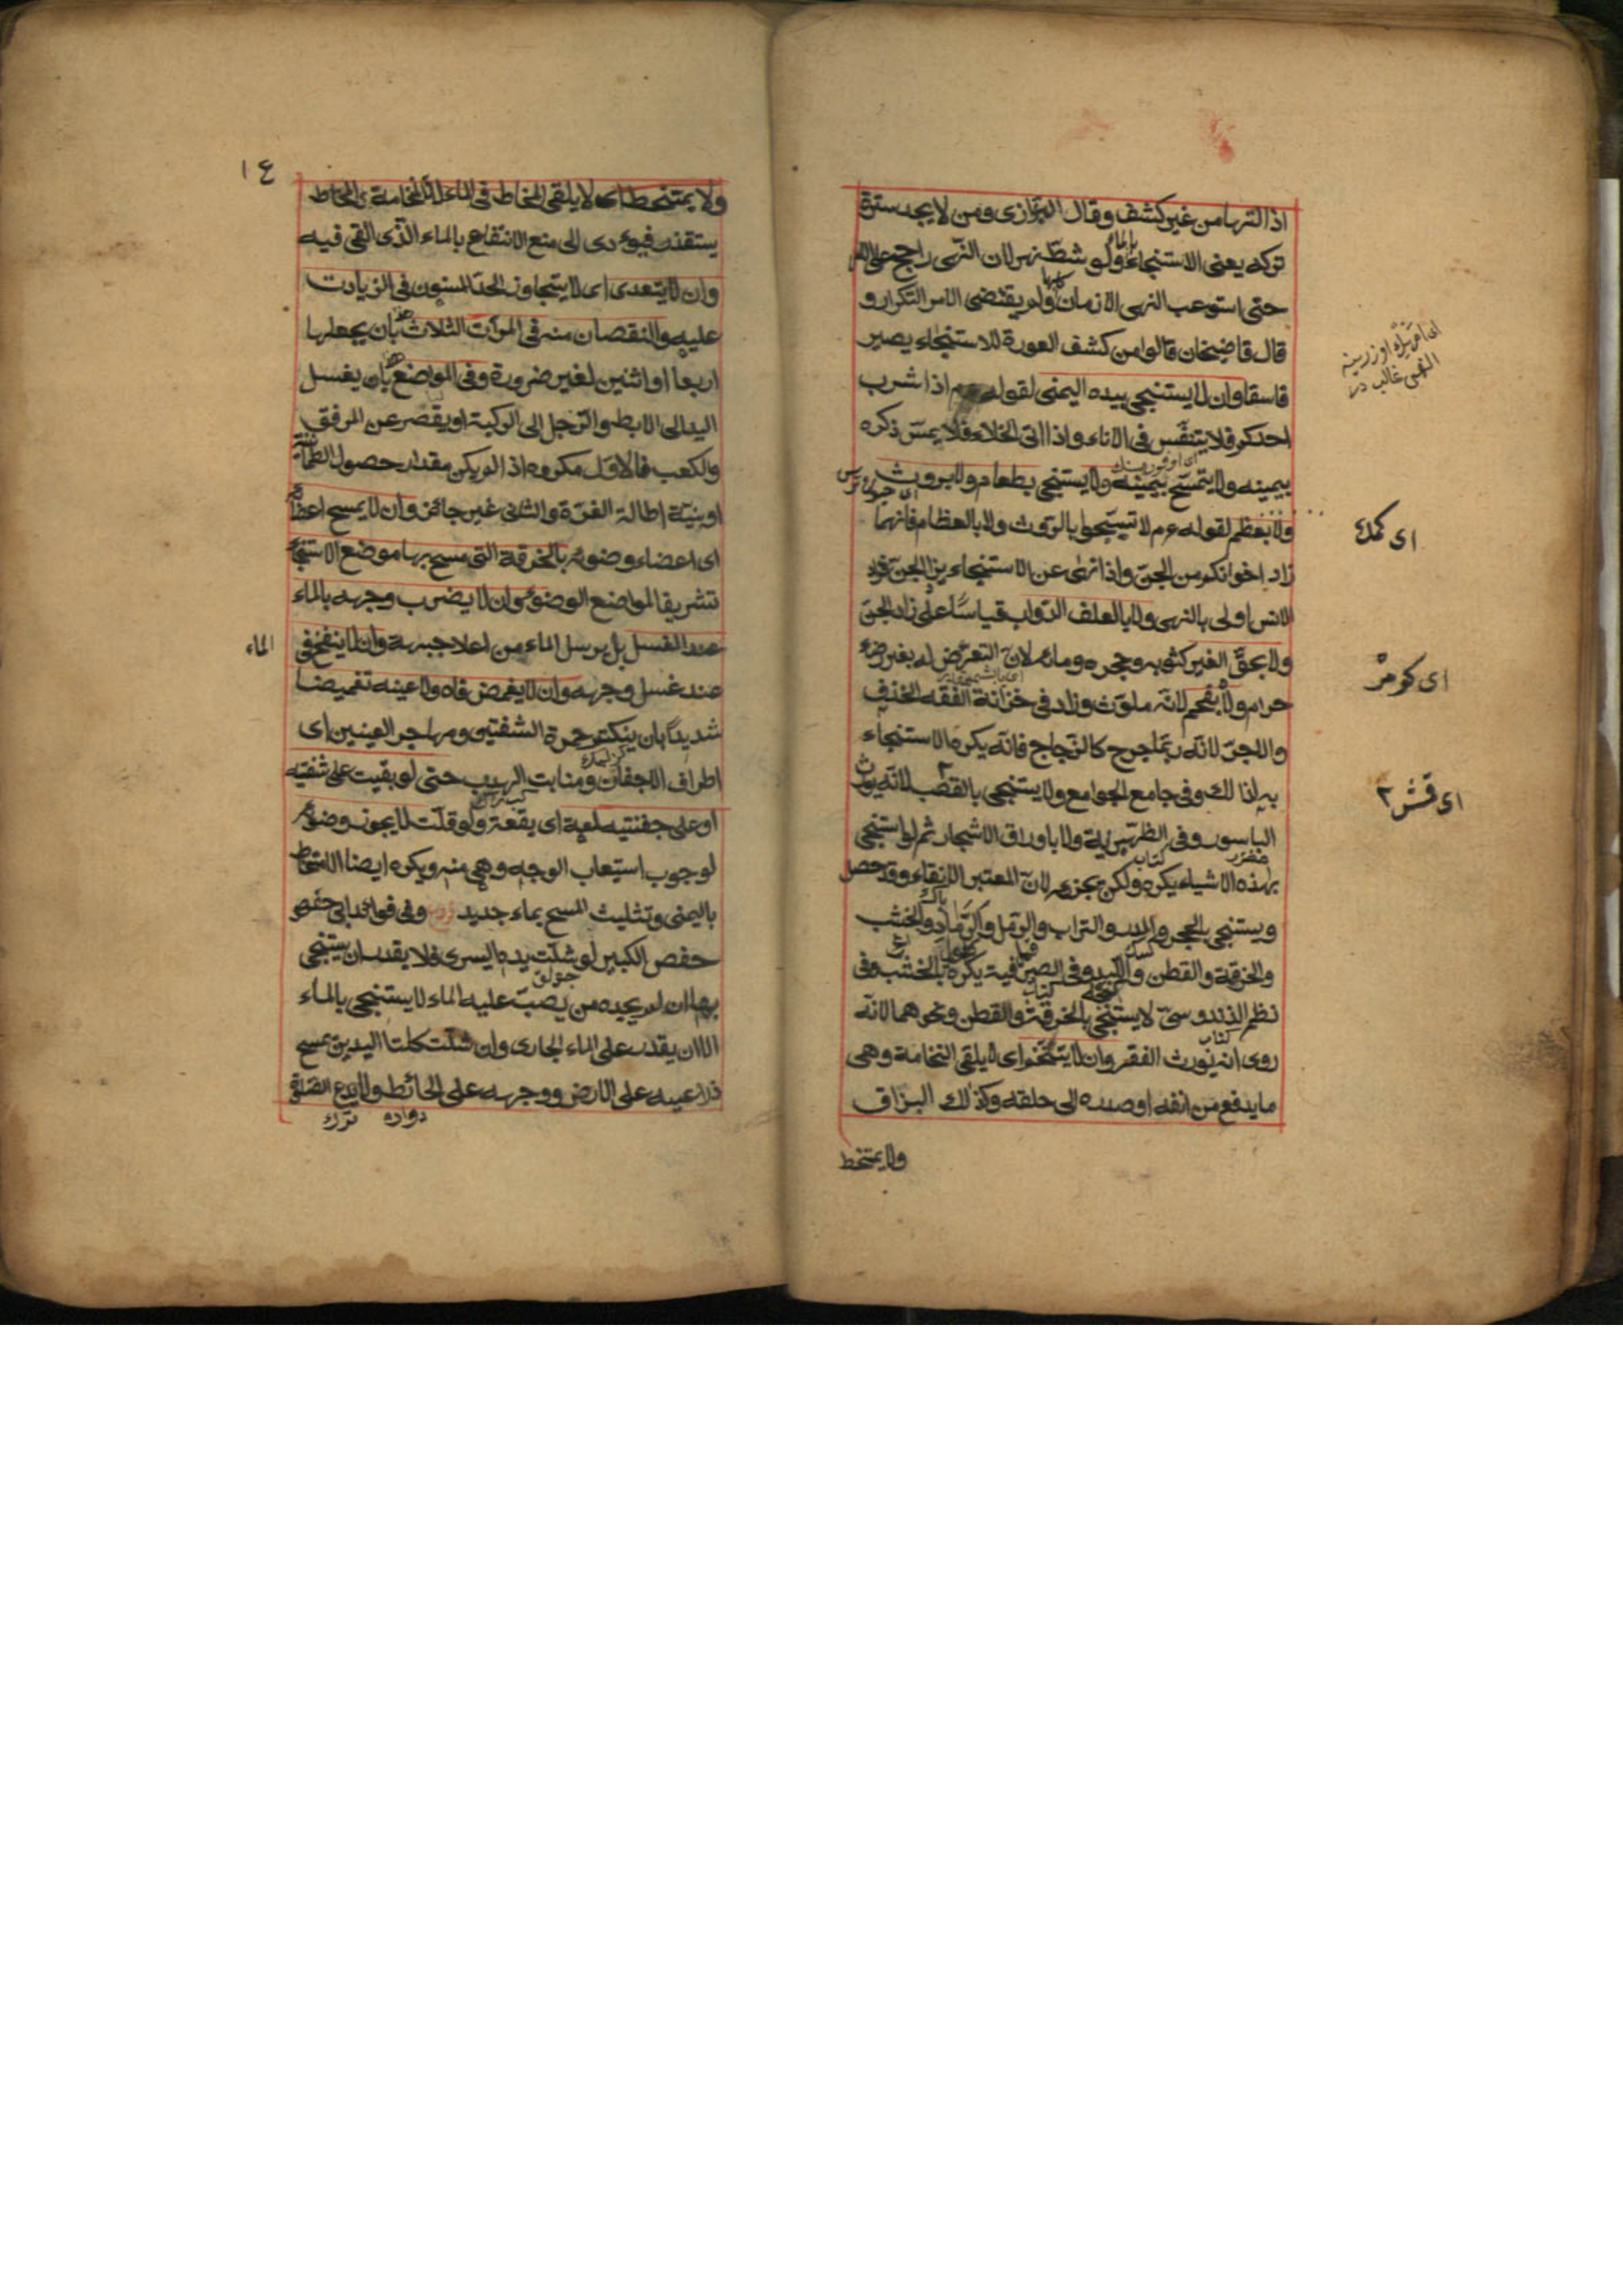 اذالتها من غير كشف وقال البزازى ومن لا يجد سترة
تركه يعنى الاستنجاء بالماء ولو شط نهر لان النهى راجح على الامر
حتى استوعب النهى الازمان كلها ولم يقتضى الامر التكرار و
قال قاضيخان قالوا من كشف العورة للاستنجاء يصير
فاسقا وان لا يستنجى بيده اليمنى لقوله عم اذا شرب
احدكم فلا يتنفس فى الاناء واذا اتى الخلاء فلا يمس ذكره
بيمينه ولا يتمسح بيمينه ولا يستنجى بطعام ولا بروث
ولا بعظم لقوله عم لا تستنجوا بالروث ولا بالعظام فانهما
زاد اخوانكم من الجن واذا نهى عن الاستنجاء بزاد الجن فزاد
الانس اولى بالنهى ولا بالعلف الدواب قياسا على زاد الجن
ولا بحق الغير كثوبه وحجره ومائه لان التعرض له بغير رضاء
حرام ولا بفحم لانه ملوث وزاد فى خزانة الفقه الخذف
والاجر لانه ربما جرح كالزجاج فانه يكره الاستنجاء
به لذا لك وفى جامع الجوامع ولا يستنجى بالقصب لانه يورث
الباسور وفى الظهيرية ولا باوراق الاشجار ثم لو استنجى
بهذه الاشياء يكره ولكن يجزء لان المعتبر الانقاء وقد حصل
ويستنجى بالحجر والمدر والتراب والرمل والرماد والخشب
والخرقة والقطن واللبد وفى الصيرفية يكره بالخشب وفى
نظم الزندوسى لا يستنجى بالخرقة والقطن ونحوهما لانه
روى انه يورث الفقر وان لا يتنخم اى لا يلقى النخامة وهى
ما يدفع من انفه او صدره الى حلقه وكذلك البزاق
ولا يمتخط
اى كمك
اى كومر
اى قمش
١٤
ولا يمتخط اى لا يلقى المخاط فى الماء لان النخامة والمخاط
يستقذر فيؤدى الى منع الانتفاع بالماء الذى القى فيه
وان لا يتعدى اى لا يتجاوز الحد المسنون فى الزيادت
عليه والنقصان منه فى المرات الثلاث بان يجعلها
اربعا او اثنين لغير ضرورة وفى المواضع بان يغسل
اليد الى الابط والرجل الى الركبة او يقصر عن المرفق
والكعب فالاول مكروه اذ لم يكن مقدار حصول الطمانية
او بنية اطالة الغرة والثانى غير جائز وان لا يمسح اعضاءه
اى اعضاء وضوئه بالخرقة التى مسح بها موضع الاستنجاء
تشريفا لمواضع الوضوء وان لا يضرب وجهه بالماء
عند الغسل بل يرسل الماء من اعلا جبهة وان لا ينفخ فى
الماء
عند غسل وجهه وان لا يغمض فاه ولا عينه تغميضا
شديدا بان ينكتم حمرة الشفتين ومهاجر العينين اى
اطراف الاجفان ومنابت الهدب حتى لو بقيت على شفتيه
او على جفنتيه لمعة اى بقعة ولو قلت لا يجوز وضوئه
لوجوب استيعاب الوجه وهى منه ويكره ايضا الامتخاط
باليمنى وتثليث المسح بماء جديد وفى فوائد ابى حفص
حفص الكبير لو شلت يده اليسرى فلا يقدر ان يستنجى
بها ان لم يجده من يصب عليه الماء لا يستنجى بالماء
الا ان يقدر على الماء الجارى وان شلت كلتا اليدين يمسح
ذراعيه على الارض ووجهه على الحائط ولا يدع الصلوة
دواره ترك